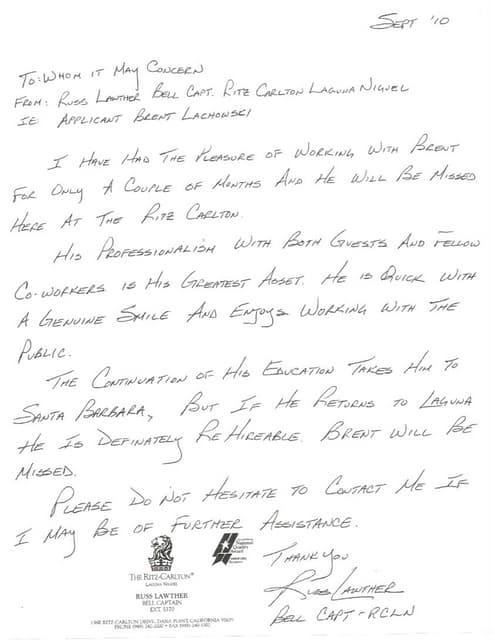 SEPT '10
TO: WHOM IT MAY CONCERN
FROM: RUSS LAWTHER BELL CAPT. RITZ CARLTON LAGUNA NIGUEL
IE APPLICANT BRENT LACHOWSKI
I HAVE HAD THE PLEASURE OF WORKING WITH BRENT
FOR ONLY A COUPLE OF MONTHS AND HE WILL BE MISSED
HERE AT THE RITZ CARLTON.
HIS PROFESSIONALISM WITH BOTH GUESTS AND FELLOW
CO-WORKERS IS HIS GREATEST ASSET. HE IS QUICK WITH
A GENUINE SMILE AND ENJOYS WORKING WITH THE
PUBLIC.
THE CONTINUATION OF HIS EDUCATION TAKES HIM TO
SANTA BARBARA, BUT IF HE RETURNS TO LAGUNA
HE IS DEFINATELY REHIREABLE. BRENT WILL BE
MISSED.
PLEASE DO NOT HESITATE TO CONTACT ME IF
I MAY BE OF FURTHER ASSISTANCE.
THANK YOU
RUSS LAWTHER
BELL CAPT - RCLN
THE RITZ-CARLTON®
LAGUNA NIGUEL
RUSS LAWTHER
BELL CAPTAIN
EXT. 5370
RITZ CARLTON DRIVE, DANA POINT, CALIFORNIA 92629